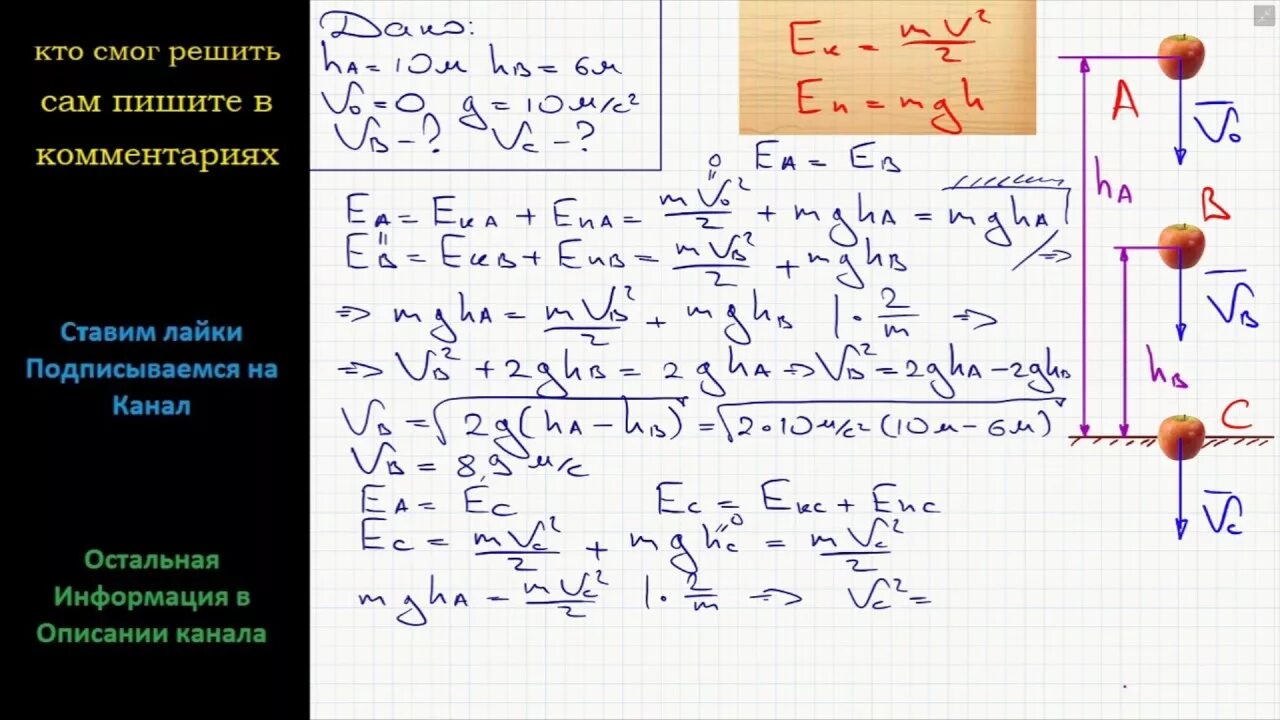 кто смог решить
сам пишите в
комментариях
Ставим лайки
Подписываемся на
Канал
Остальная
Информация в
Описании канала
Дано:
hA = 10м hB = 6м
V₀ = 0, g = 10 м/с²
VB - ? VC - ?
Eк = mV²/2
Eп = mgh
EA = EB
EA = EкA + EпA = mV₀²/2 + mghA = mghA
0
=
EB = EкB + EпB = mVB²/2 + mghB =>
=> mghA = mVB²/2 + mghB | · 2/m =>
=> VB² + 2ghB = 2ghA => VB² = 2ghA - 2ghB
VB = √(2g(hA - hB)) = √(2·10м/с²(10м - 6м))
VB = 8,9 м/с
EA = EC EC = EкC + EпC
EC = mVC²/2 + mghC = mVC²/2
0
mghA = mVC²/2 | · 2/m => VC² =
A
V₀
hA
B
VB
hB
C
VC